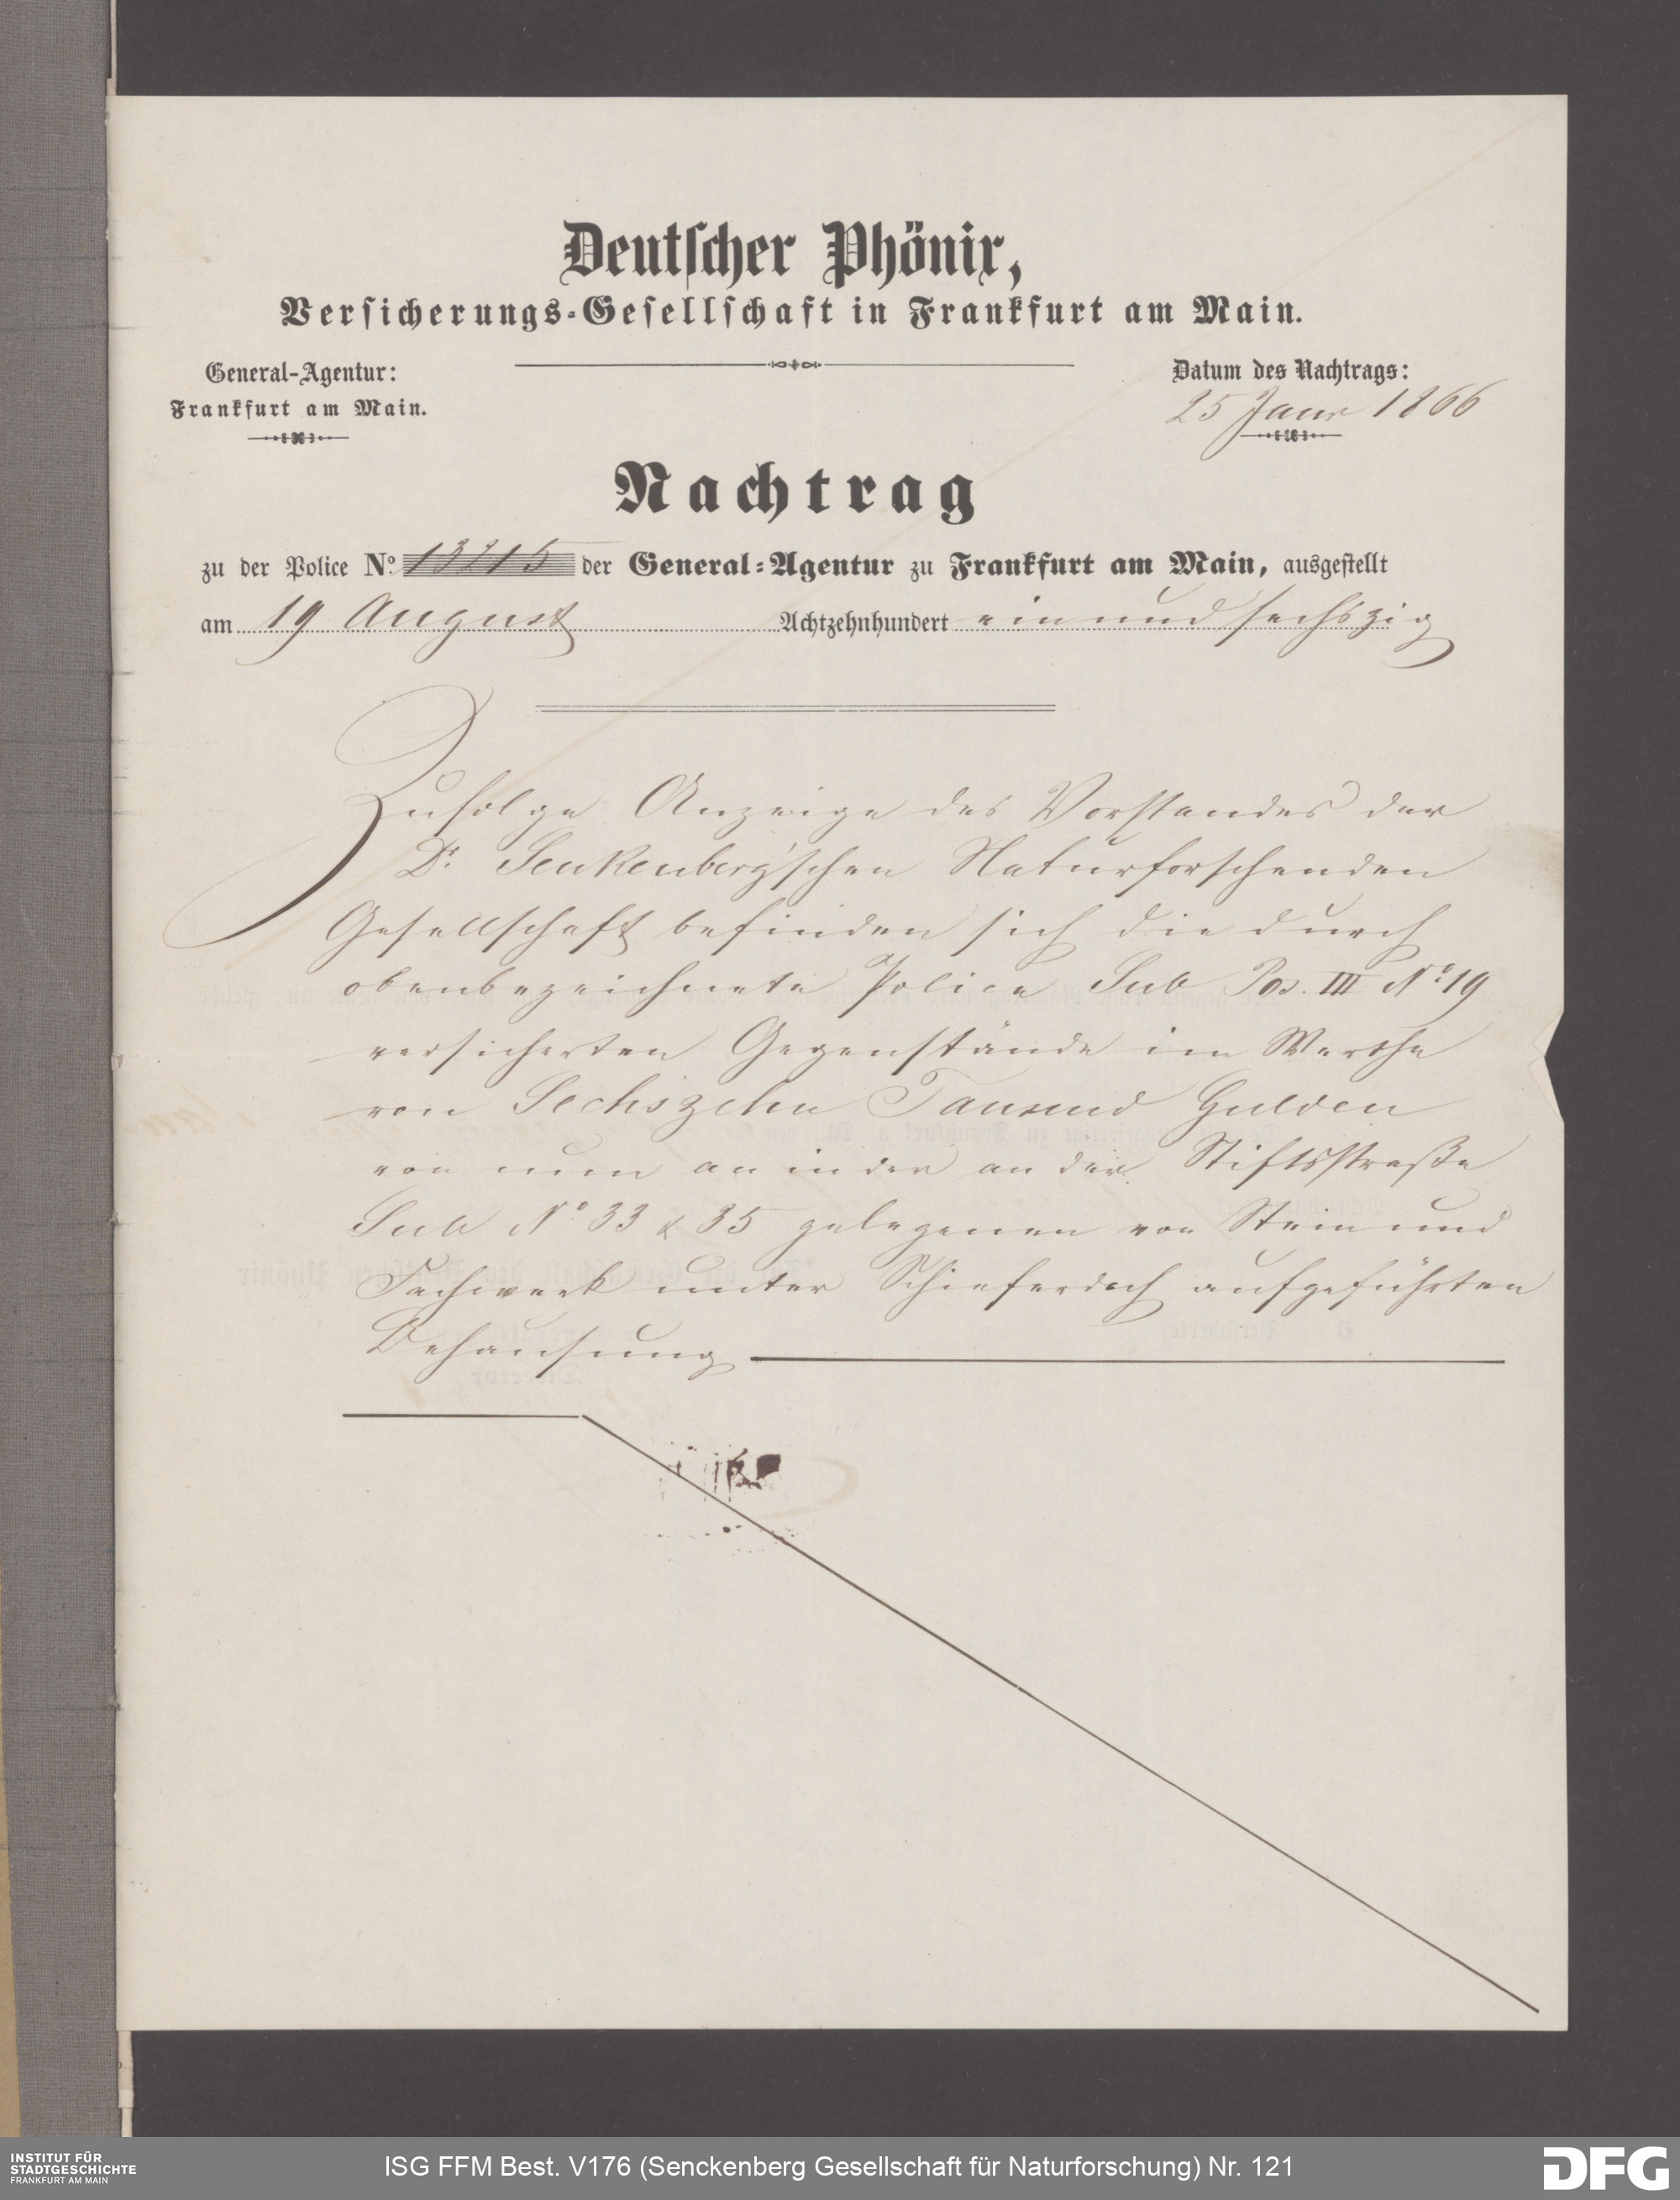 Deutscher Phönix,
Versicherungs-Gesellschaft in Frankfurt am Main.
General-Agentur:
Frankfurt am Main.
Datum des Nachtrags:
25 Janr 1866
Nachtrag
zu der Police No. 13215 der General-Agentur zu Frankfurt am Main, ausgestellt
am 19 August Achtzehnhundert ein und sechszig
Zufolge Anzeige des Vorstandes der
Dr. Senkenberg'schen Naturforschenden
Gesellschaft befinden sich die durch
obenbezeichnete Police Sub Pos. III No. 19
versicherten Gegenstände im Werthe
von Sechszehn Tausend Gulden
von nun an in der an der Stiftsstraße
Sub No. 33 & 35 gelegenen von Stein und
Fachwerk unter Schieferdach aufgeführten
Behausung
INSTITUT FÜR
STADTGESCHICHTE
FRANKFURT AM MAIN
ISG FFM Best. V176 (Senckenberg Gesellschaft für Naturforschung) Nr. 121
DFG